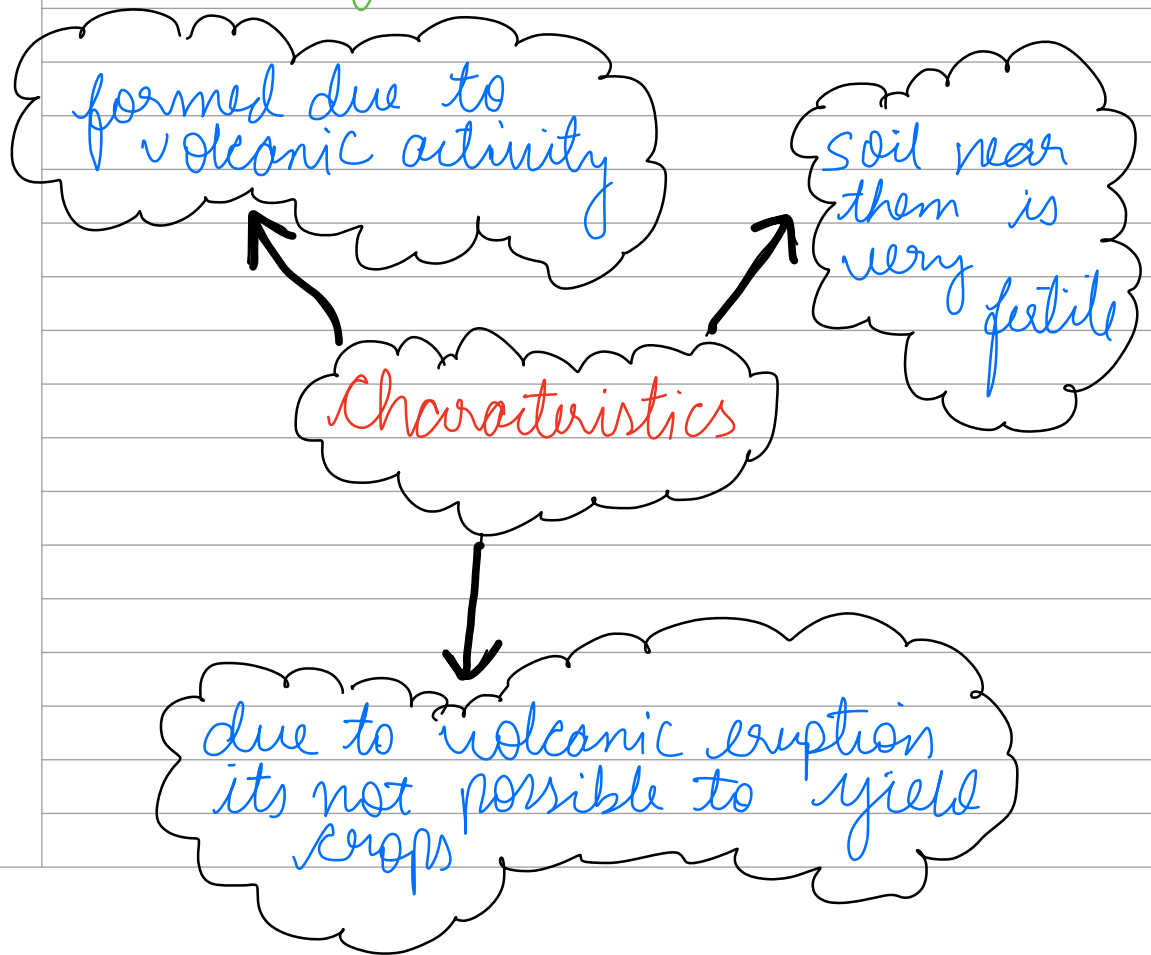 formed due to
volcanic activity
soil near
them is
very
fertile
Characteristics
due to volcanic eruption
its not possible to yield
crops